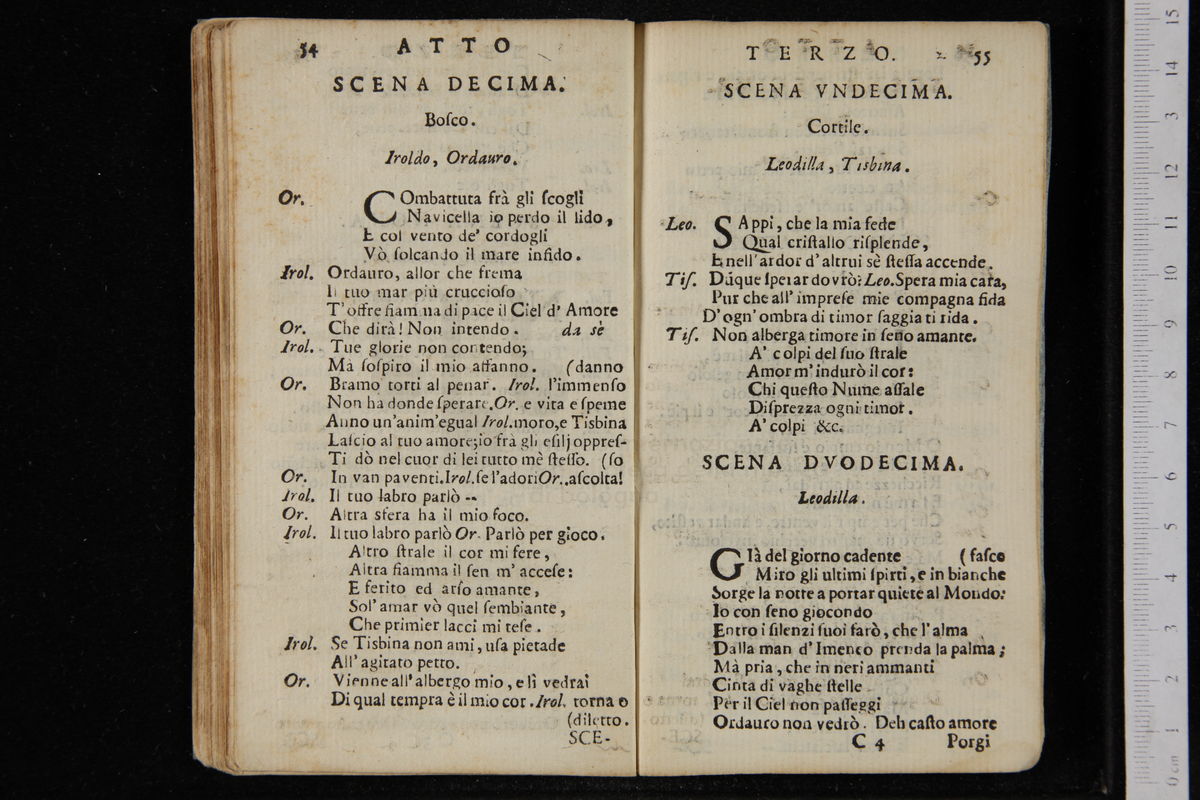 54 ATTO
SCENA DECIMA.
Boſco.
Iroldo, Ordauro.
Or. COmbattuta frà gli ſcogli
Navicella io perdo il lido,
E col vento de' cordogli
Vò ſolcando il mare infido.
Irol. Ordauro, allor che frema
Il tuo mar più crucciofo
T'offre fiamma di pace il Ciel d' Amore
Or. Che dirà! Non intendo. da sè
Irol. Tue glorie non contendo;
Ma ſoſpiro il mio affanno. (danno
Or. Bramo torti al penar. Irol. l'immenſo
Non ha donde ſperare. Or. e vita e ſpeme
Anno un'anim'egual Irol. moro, e Tisbina
Laſcio al tuo amore; io frà gli eſilj oppreſ-
Ti dò nel cuor di lei tutto mè ſteſſo. (ſo
Or. In van paventi. Irol. ſe l'adori Or. aſcolta!
Irol. Il tuo labro parlò --
Or. Altra sfera ha il mio foco.
Irol. Il tuo labro parlò Or. Parlò per gioco.
Altro ſtrale il cor mi fere,
Altra fiamma il ſen m' acceſe:
E ferito ed arſo amante,
Sol' amar vò quel ſembiante,
Che primier lacci mi teſe.
Irol. Se Tisbina non ami, uſa pietade
All' agitato petto.
Or. Vienne all' albergo mio, e lì vedrai
Di qual tempra è il mio cor. Irol. torna o
(diletto.
SCE-
TERZO. 55
SCENA VNDECIMA.
Cortile.
Leodilla, Tisbina.
Leo. SAppi, che la mia fede
Qual criſtallo riſplende,
E nell' ardor d' altrui sè ſteſſa accende.
Tiſ. Dũque ſperar dovrò? Leo. Spera mia cara,
Pur che all' impreſe mie compagna fida
D' ogn' ombra di timor ſaggia ti rida.
Tiſ. Non alberga timore in ſeno amante.
A' colpi del ſuo ſtrale
Amor m' indurò il cor:
Chi queſto Nume aſſale
Diſprezza ogni timor.
A' colpi &c.
SCENA DVODECIMA.
Leodilla.
GIà del giorno cadente (faſce
Miro gli ultimi ſpirti, e in bianche
Sorge la notte a portar quiete al Mondo:
Io con ſeno giocondo
Entro i ſilenzi ſuoi farò, che l' alma
Dalla man d' Imeneo prenda la palma;
Mà pria, che in neri ammanti
Cinta di vaghe ſtelle
Per il Ciel non paſſeggi
Ordauro non vedrò. Deh caſto amore
C 4 Porgi
15
14
13
12
11
10
9
8
7
6
5
4
3
2
1
0 cm